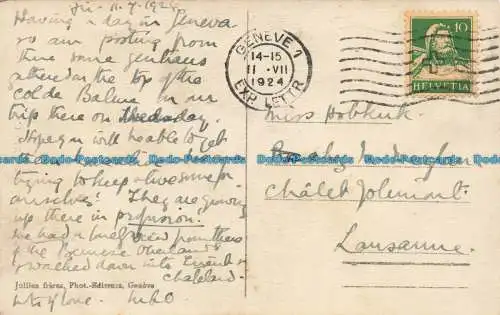 Fri. 11.7.1924
Having a day in Geneva
so am posting from
there some gentians
gathered on the top of the
Col de Balme in our
trip there on Thursday.
Hope you will be able to get
trying to keep alive some for
ourselves! They are growing
up there in profusion.
we had a lovely view from there
of the Bernese Oberland
& walked down into &
chatelard.
lots of love. MKO
Jullien frères, Phot.-Editeurs, Genève
GENEVE 1
14-15
11. VII
1924
EXP. LETTR.
10
HELVETIA
Miss Hobkirk
Châlet Jolimont
Lausanne.
Dodo-Postcards Dodo-Postcards Dodo-Postcards Dodo-Postcards